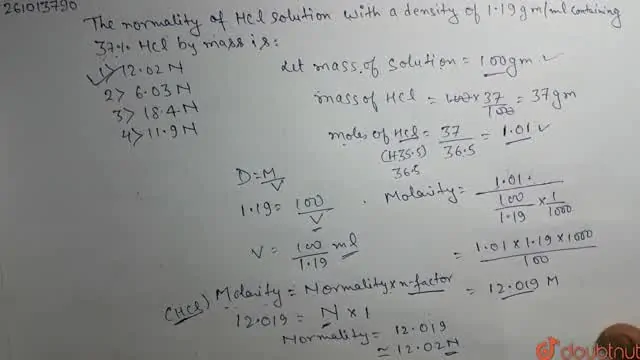 261013790
The normality of HCl solution with a density of 1.19 gm/ml containing
37% HCl by mass is:
1> 12.02 N
2> 6.03 N
3> 18.4 N
4> 11.9 N
Let mass of solution = 100 gm
mass of HCl = 100 × 37/100 = 37 gm
moles of HCl = 37/36.5 = 1.01
(H35.5)
36.5
D = M/V
1.19 = 100/V
V = 100/1.19 ml
Molarity = 1.01/(100/1.19 × 1/1000)
= 1.01 × 1.19 × 1000/100
= 12.019 M
(HCl) Molarity = Normality × n-factor
12.019 = N × 1
Normality = 12.019
≃ 12.02 N
doubtnut